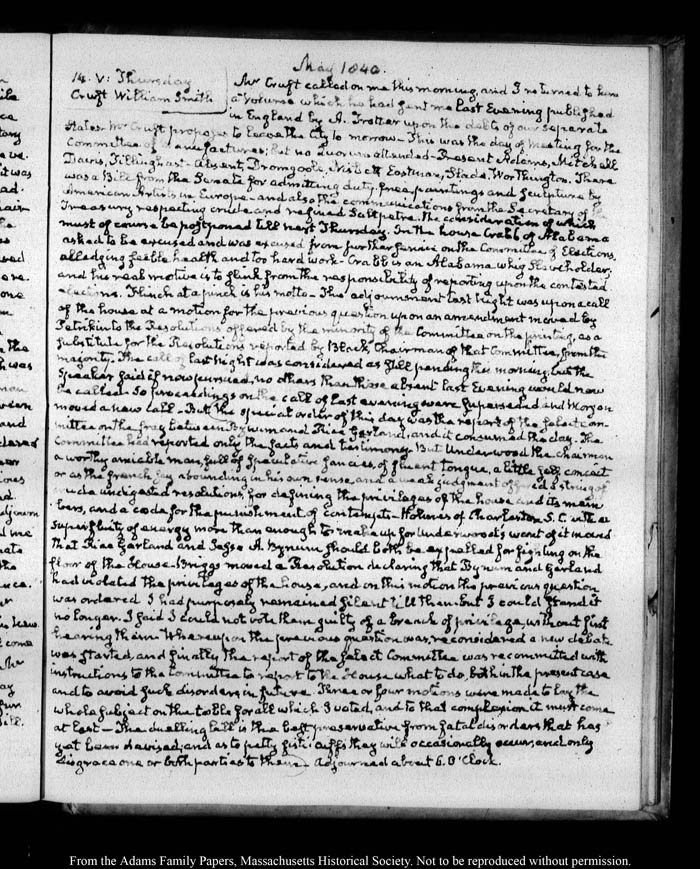 May 1840.
14. V: Thursday
Cruft William Smith
Mr Cruft called on me this morning, and I returned to him
a volume which he had sent me last Evening published
in England by A. Trotter upon the debts of our separate
States. Mr Cruft proposes to leave the City to morrow — This was the day of meeting for the
Committee of Manufactures; but no quorum attended — Present Adams, Mitchell
Davis, Tillinghast — Absent, Dromgoole, Nisbett, Eastman, Slade, Worthington. There
was a Bill from the Senate for admitting duty free, paintings and sculpture by
American Artists in Europe — and also the communications from the Secretary of the
Treasury respecting crude and refined Saltpetre. The consideration of which
must of course be postponed till next Thursday. In the house Crabb of Alabama
asked to be excused and was excused from further service on the Committee of Elections,
alledging feeble health and too hard work — Crabb is an Alabama whig Slave holder,
and his real motive is to flink from the responsibility of reporting upon the contested
elections. Flinch at a pinch is his motto — The adjournment last Night was upon a call
of the house at a motion for the previous question upon an amendment moved by
Petrikin to the Resolutions offered by the minority of the Committee on the printing, as a
substitute for the Resolutions reported by Black, Chairman of that Committee, from the
majority. The call of last Night was considered as still pending this morning, but the
Speaker said if now pursued, no others than those absent last Evening would now
be called — So proceedings on the call of last evening were superseded and Morgan
moved a new call — But the special order of this day was the report of the select com-
mittee on the fray between Bynum and Rice Garland, and it consumed the day. The
Committee had reported only the facts and testimony. But Underwood the Chairman
a worthy amiable man, full of speculative fancies, of fluent tongue, a little self conceit
or as the french say abounding in his own sense, and a weak judgment offered a string of
crude undigested resolutions, for defining the privileges of the house and its mem
bers, and a code for the punishment of contempts — Holmes of Charleston S.C. with a
superfluity of energy more than enough to make up for Underwood's want of it moved
that Rice Garland and Jesse A. Bynum should both be expelled for fighting on the
floor of the House. Briggs moved a Resolution declaring that Bynum and Garland
had violated the privileges of the house, and on this motion the previous question
was ordered. I had purposely remained silent till then — but I could stand it
no longer. I said I could not vote them guilty of a breach of privilege, without first
hearing them. Whereupon the previous question was reconsidered a new debate
was started, and finally the report of the select Committee was recommitted with
instructions to the Committee to report to the House what to do, both in the present case
and to avoid such disorders in future. Three or four motions were made to lay the
whole subject on the table for all which I voted, and to that complexion it must come
at last — The duelling bill is the best preservative from fatal disorders that has
yet been devised, and as to petty fisticuffs they will occasionally occur, and only
disgrace one or both parties to them — Adjourned about 6. O'Clock.
From the Adams Family Papers, Massachusetts Historical Society. Not to be reproduced without permission.